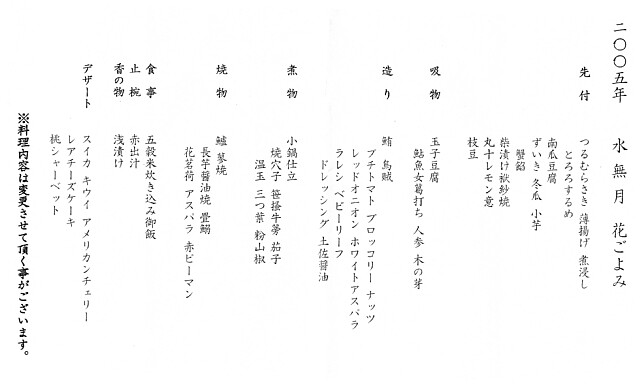 二〇〇五年　水無月　花ごよみ
先付　つるむらさき 薄揚げ 煮浸し
とろろするめ
南瓜豆腐
ずいき 冬瓜 小芋
蟹餡
柴漬け袱紗焼
丸十レモン煮
枝豆
吸物　玉子豆腐
鮎魚女葛打ち 人参 木の芽
造り　鮪 烏賊
プチトマト ブロッコリー ナッツ
レッドオニオン ホワイトアスパラ
ラレシ ベビーリーフ
ドレッシング 土佐醤油
煮物　小鍋仕立
焼穴子 笹掻牛蒡 茄子
温玉 三つ葉 粉山椒
焼物　鱸 蓼焼
長芋醤油焼 畳鰯
花茗荷 アスパラ 赤ピーマン
食事　五穀米炊き込み御飯
止椀　赤出汁
香の物　浅漬け
デザート　スイカ キウイ アメリカンチェリー
レアチーズケーキ
桃シャーベット
※料理内容は変更させて頂く事がございます。